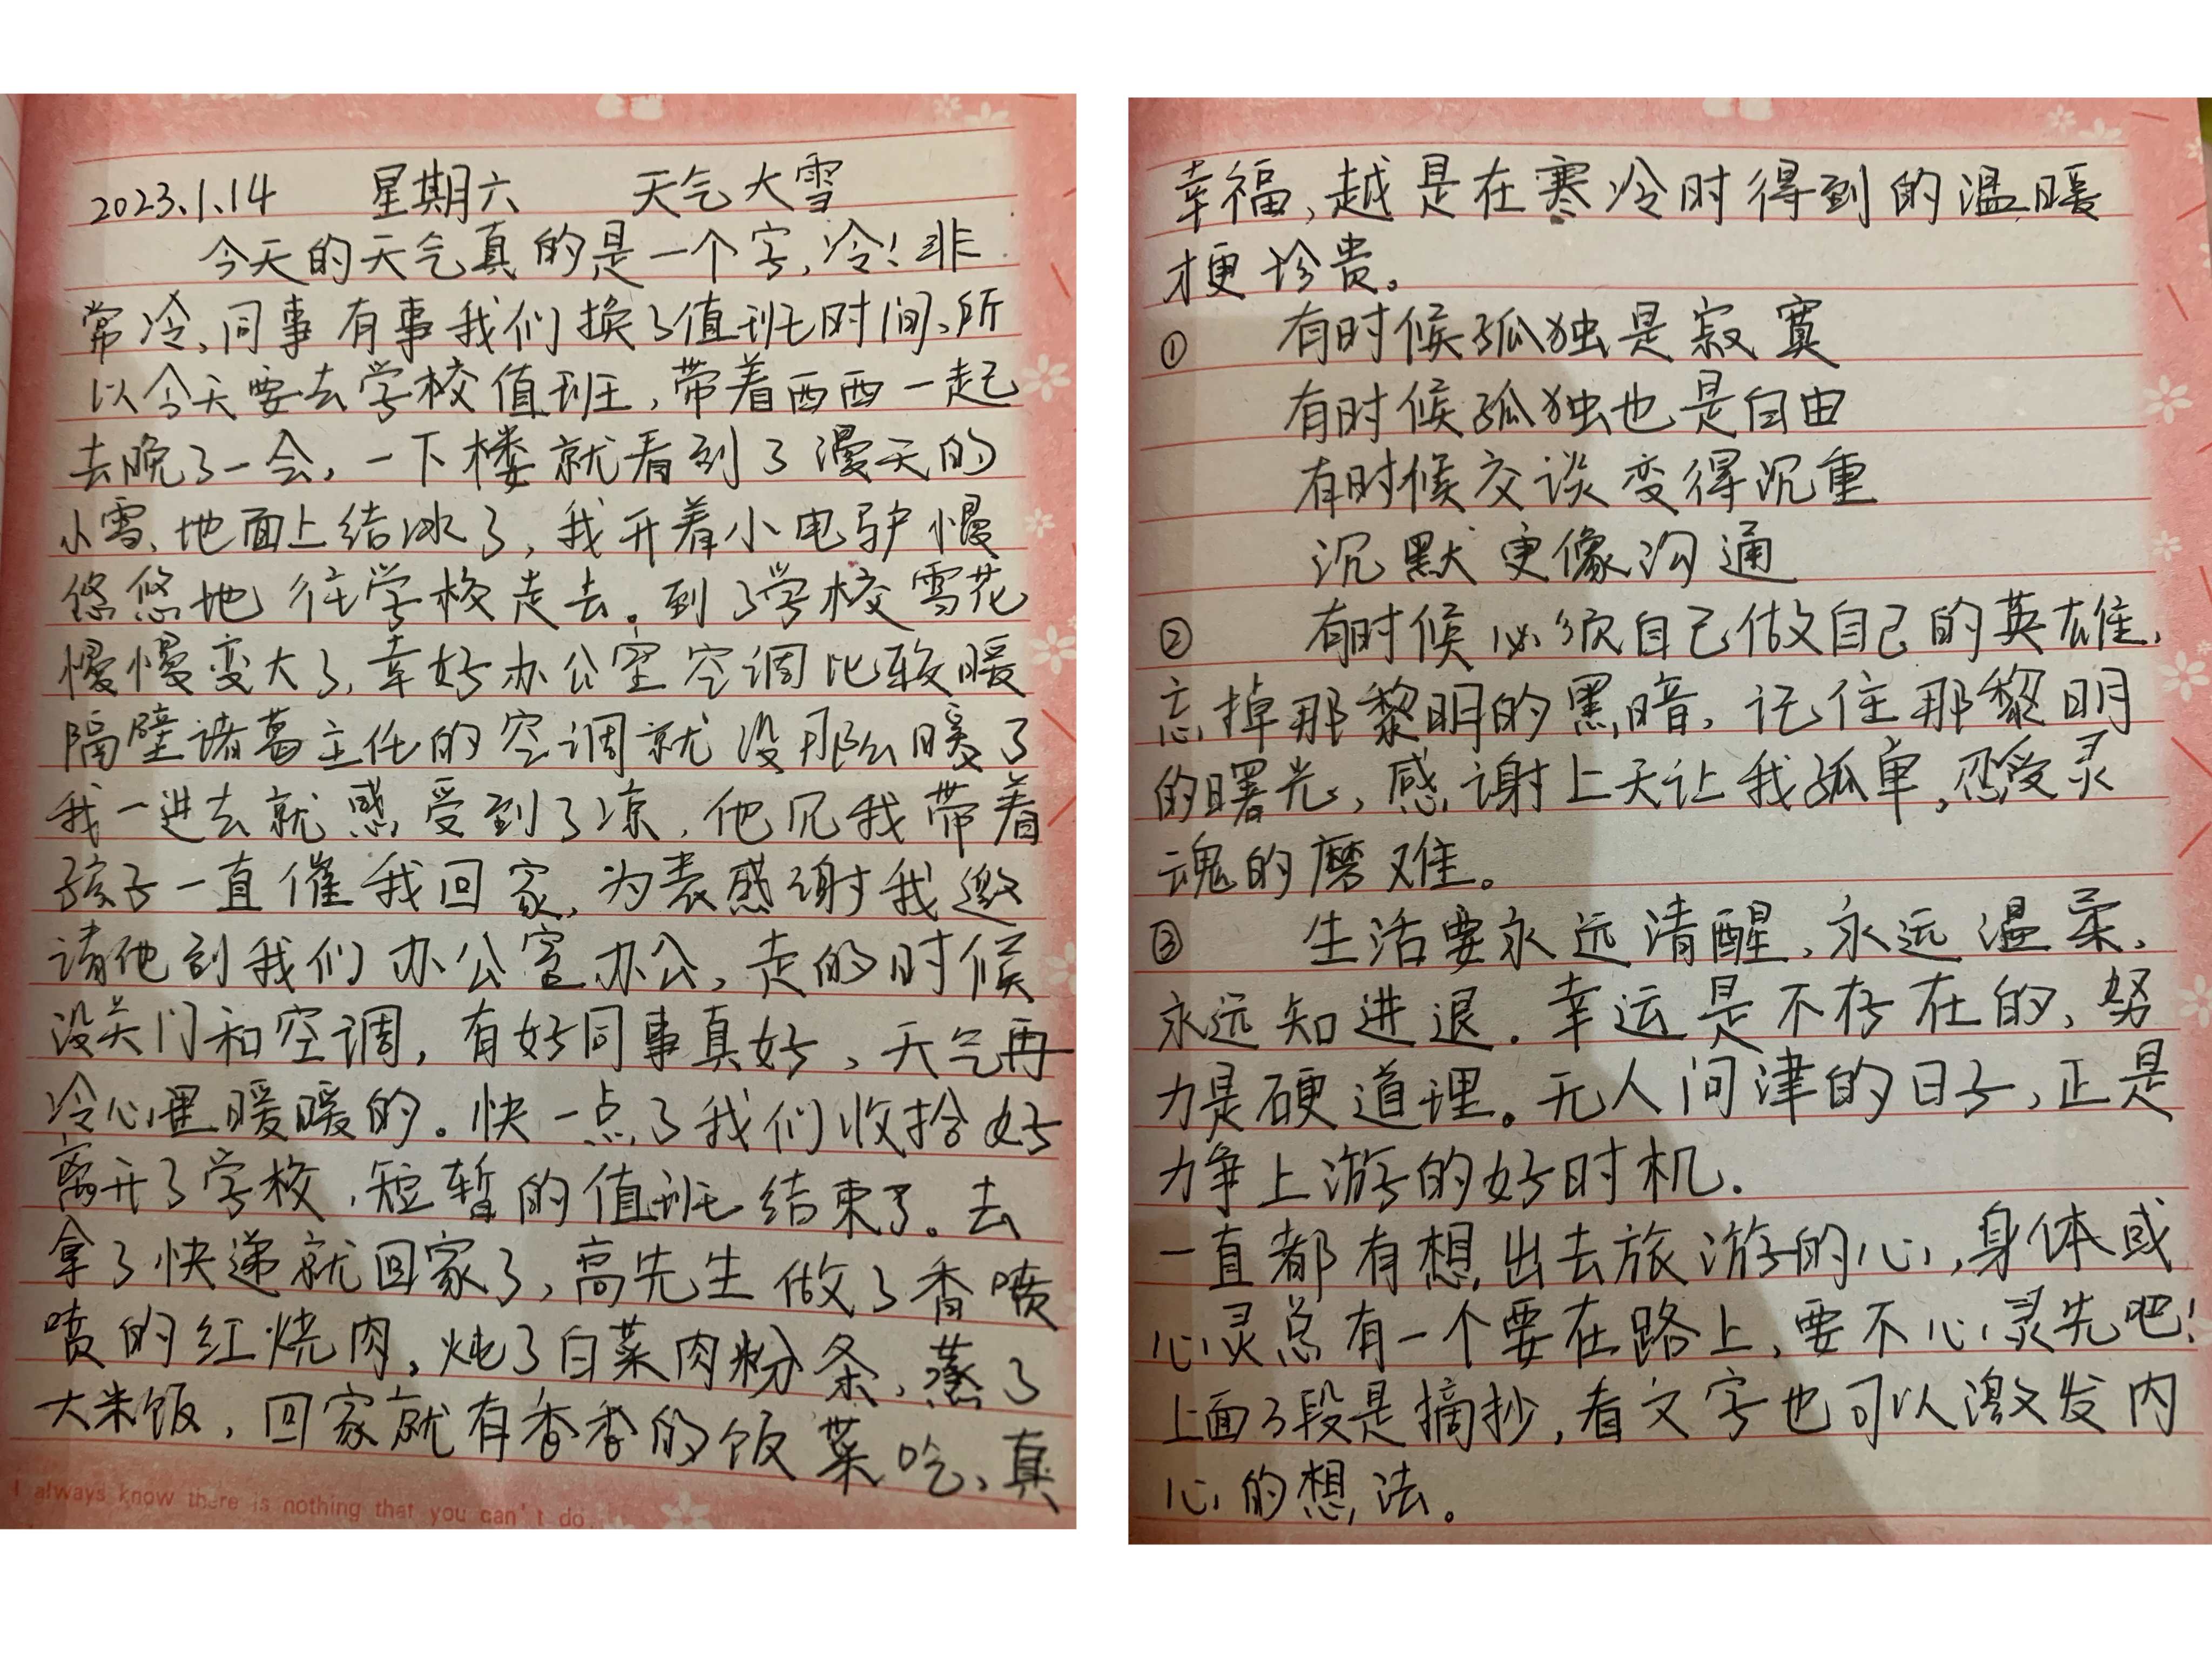 2023.1.14 星期六 天气大雪
今天的天气真的是一个字,冷!非
常冷,同事有事我们换了值班时间,所
以今天要去学校值班,带着西西一起
去晚了一会,一下楼就看到了漫天的
小雪,地面上结冰了,我开着小电驴慢
悠悠地往学校走去。到了学校雪花
慢慢变大了,幸好办公室空调比较暖
隔壁诸葛主任的空调就没那么暖了
我一进去就感受到了凉,他见我带着
孩子一直催我回家,为表感谢我邀
请他到我们办公室办公,走的时候
没关门和空调,有好同事真好,天气再
冷心里暖暖的。快一点了我们收拾好
离开了学校,短暂的值班结束了。去
拿了快递就回家了,高先生做了香喷
喷的红烧肉,炖了白菜肉粉条,蒸了
大米饭,回家就有香香的饭菜吃,真
I always know there is nothing that you can't do.
幸福,越是在寒冷时得到的温暖
才更珍贵。
① 有时候孤独是寂寞
有时候孤独也是自由
有时候交谈变得沉重
沉默更像沟通
② 有时候必须自己做自己的英雄,
忘掉那黎明的黑暗,记住那黎明
的曙光,感谢上天让我孤单,忍受灵
魂的磨难。
③ 生活要永远清醒,永远温柔,
永远知进退.幸运是不存在的,努
力是硬道理。无人问津的日子,正是
力争上游的好时机.
一直都有想出去旅游的心,身体或
心灵总有一个要在路上,要不心灵先吧!
上面3段是摘抄,看文字也可以激发内
心的想法。